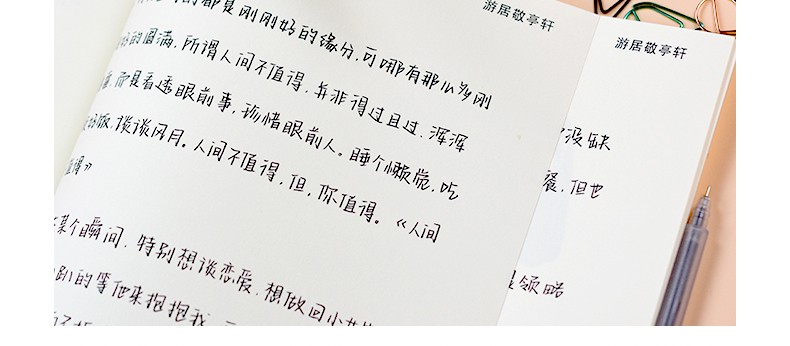 游居敬亭轩
都是刚刚好的缘分,可哪有那么多刚
好的圆满,所谓人间不值得,并非得过且过,浑浑
而是看透眼前事,珍惜眼前人。睡个懒觉,吃
饭,谈谈风月。人间不值得,但,你值得。《人间
值得》
某个瞬间,特别想谈恋爱,想做回小
趴的等他来抱抱我
游居敬亭轩
没缺
餐,但也
领略